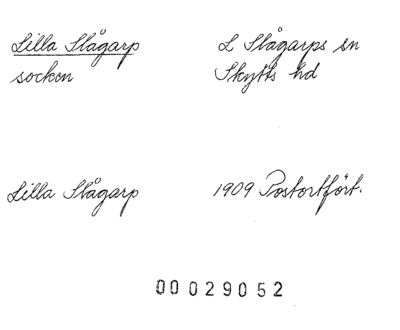 Lilla Slågarp L Slågarps sn
socken Skytts hd
Lilla Slågarp 1909 Postortfört.
00029052